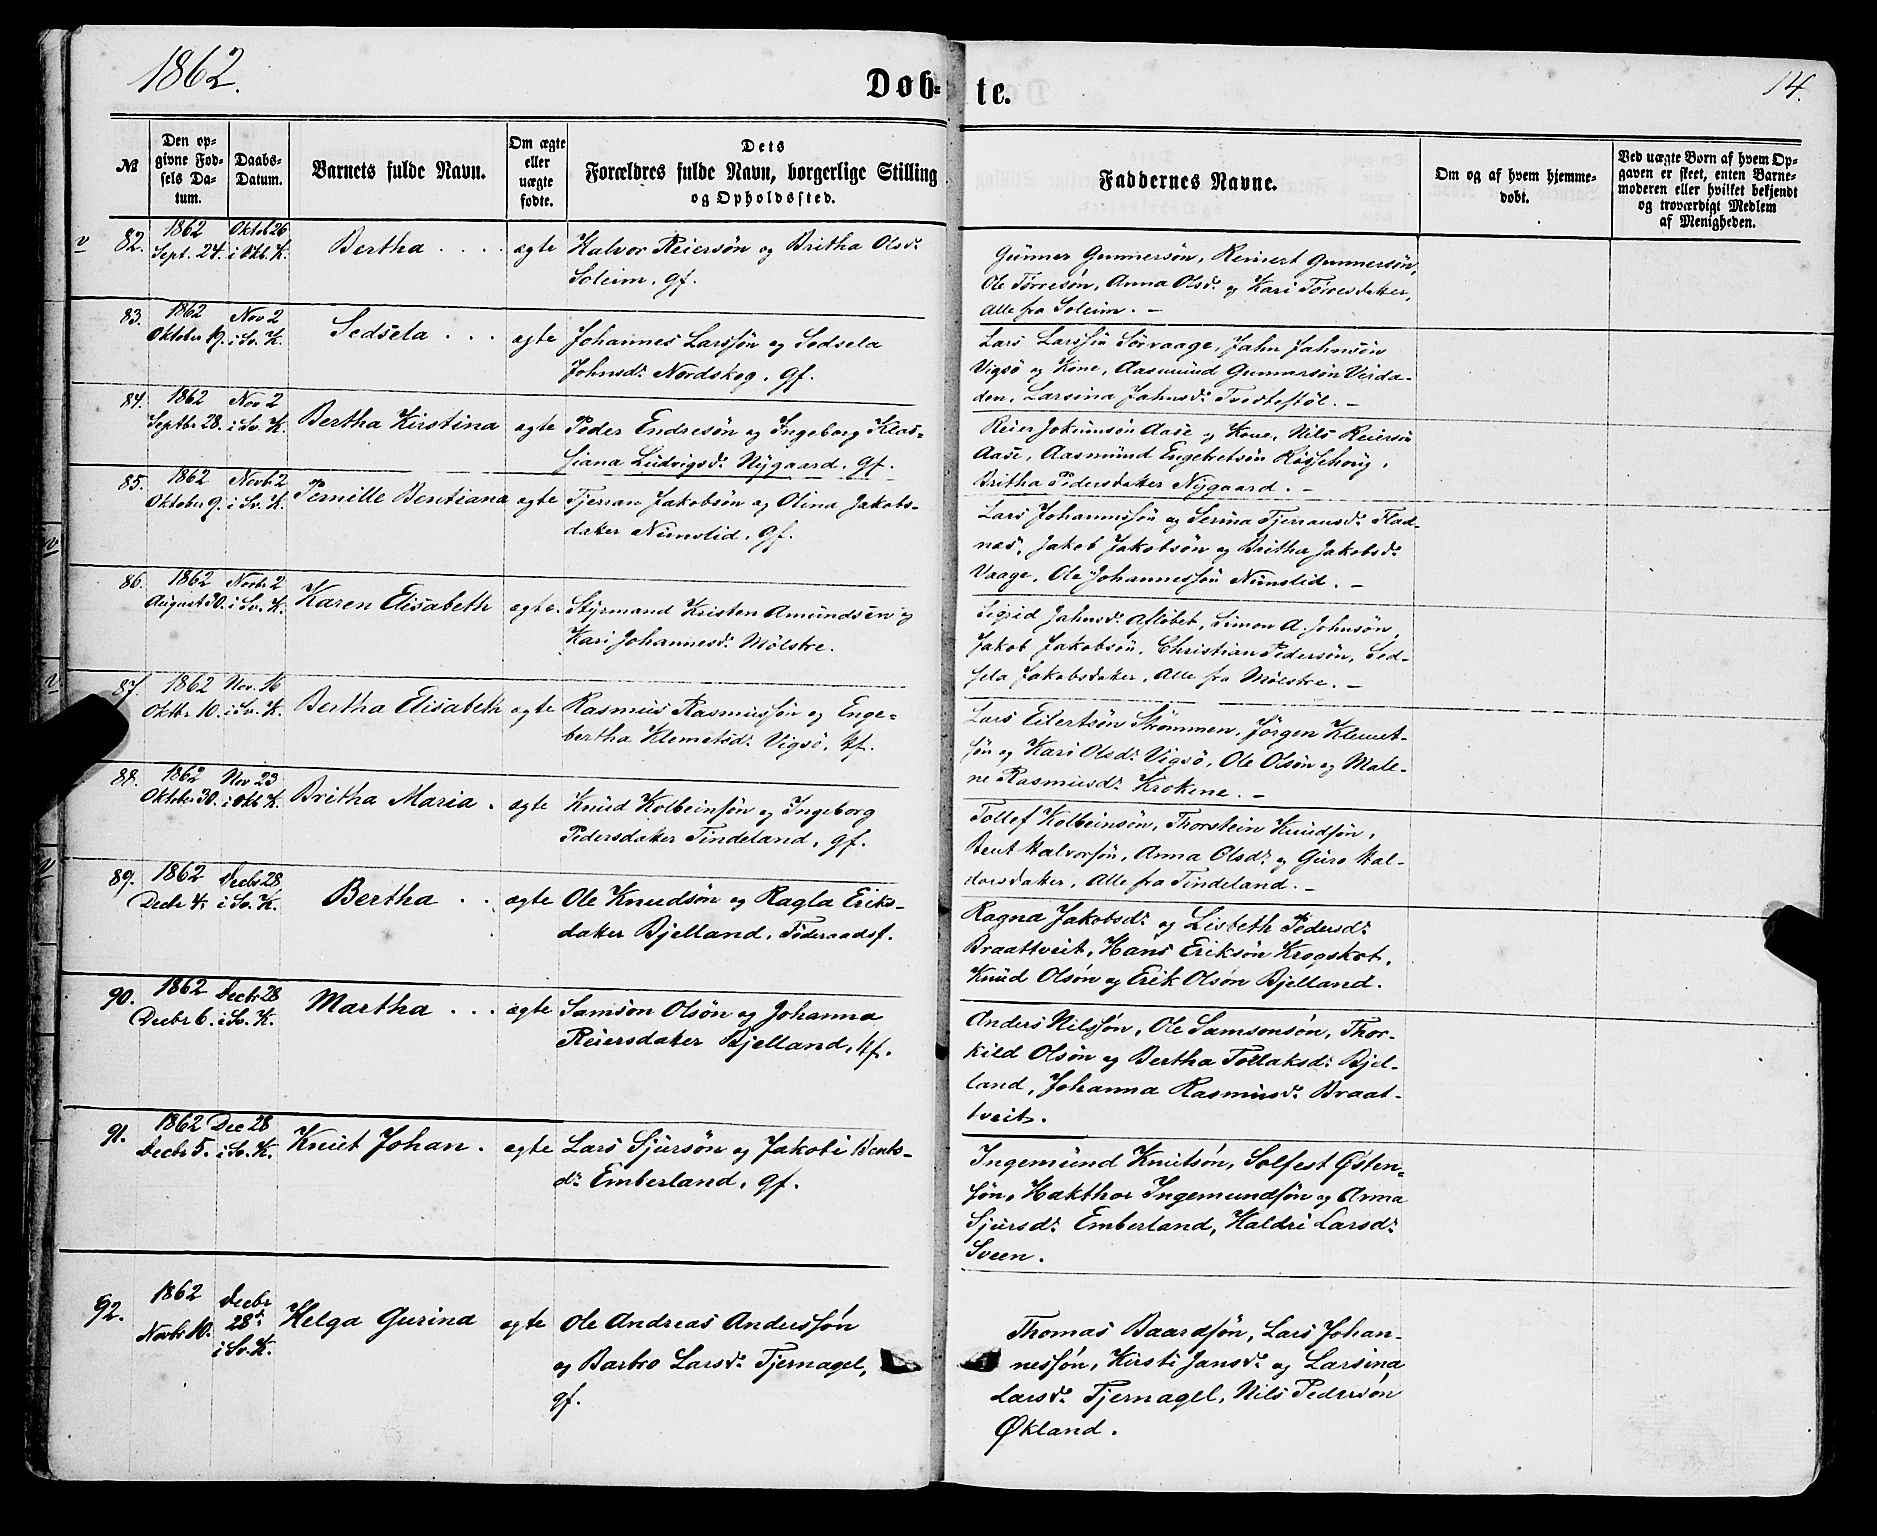 1862.
Døb-
te.
14.
№
Den op-
givne Fød-
sels Da-
tum.
Daabs-
Datum.
Barnets fulde Navn.
Om ægte
eller
uægte
fødte.
Dets
Forældres fulde Navn, borgerlige Stilling
og Opholdssted.
Faddernes Navne.
Om og af hvem hjemme-
døbt.
Ved uægte Børn af hvem Op-
gaven er skeet, enten Barne-
moderen eller hvilket bekjendt
og troværdigt Medlem
af Menigheden.
v 82. 1862 Oktob 26
Sept. 24. i Okl. K. Bertha . . . . ægte Halvor Reiersøn og Britha Olsdr
Soleim, gf.
Gunner Gunnersøn, Reinert Gunnersøn,
Ole Tørresøn, Anna Olsdr og Kari Tørresdatter,
alle fra Soleim. —
83. 1862 Nov 2
Oktober 19. i Sv. K. Sedsela . . . ægte Johannes Larssøn og Sedsela
Johnsdr Nordskog, gf.
Lars Larssøn Sørvaage, Jahn Jahnsøn
Vigsø og Kone, Aasmund Gunnarsøn
den, Larsina Jahnsdr Tveitestøl. —
84. 1862 Nov 2
Septbr 28. i Sv. K. Bertha Kirstina ægte Peder Endresøn og Ingeborg
siana Ludvigsdr Nygaard, gf.
Reier Aase og Kone, Nils Reiersøn
Aase, Aasmund Engebretsøn Røssehoug,
Britha Pedersdatter Nygaard. —
85. 1862 Novb 2
Oktober 9. i Sv. K. Pernille Bentiana ægte Tjeran Jakobsøn og Olina Jakobs-
datter Nunslid, gf.
Lars Johannssøn og Serina Tjeransdr Flad-
nes, Jakob Jakobsøn og Britha Jakobsdr
Vaage, Ole Johannessøn Nunslid. —
86. 1862 Novbr 2
August 30. i Sv. K. Karen Elisabeth ægte. Styrmand Kristen Amundsen og
Kari Johannesdr Mølstre.
Sigrid Jahnsdr Afløbet, Simon A. Johnsøn,
Jakob Jakobsøn, Christian Pedersøn, Sed-
sela Jakobsdatter, alle fra Mølstre. —
87. 1862 Nov. 16
Oktbr 10. i Sv. K. Bertha Elisabeth ægte Rasmus Rasmussøn og Enge-
bertha Klemetsdr Vigsø, hf.
Lars Eilertsøn Strømmen, Jørgen Klemet-
søn og Kari Olsdr Vigsø, Ole Olsøn og Male-
ne Rasmusdr Krokene. —
88. 1862 Nov 23
Oktober 30. i Okl K. Britha Maria . ægte Knud Kolbeinsøn og Ingeborg
Pedersdatter Tindeland, gf.
Tollef Kolbeinsøn, Thorstein Knudsøn,
Bent Halvorsøn, Anna Olsdr og Guro Hal-
dorsdatter, alle fra Tindeland. —
89. 1862 Decbr 28,
Decbr 4. i Sv. K. Bertha . . ægte Ole Knudsøn og Ragla Eriks-
datter Bjelland, Føderaadsf.
Ragna Jakobsdr og Lisbeth Pedersdr
Braattveit, Hans Eriksøn Krogskot,
Knud Olsøn og Erik Olsøn Bjelland.
90. 1862 Decbr 28
Decbr 6. i Sv. K. Martha . . . ægte Samson Olsøn og Johanna
Reiersdatter Bjelland, hf.
Anders Nilssøn, Ole Samsonsøn, Thor-
kild Olsøn og Bertha Tollaksdr Bjel-
land, Johanna Rasmusdr Braat-
tveit.
91. 1862 Dec 28
Decbr 5. i Sv. K. Knut Johan . ægte Lars Sjursøn og Jakobi Bents-
dr Emberland, gf.
Ingemund Knutsøn, Solfest Østen-
søn, Hakthor Ingemundsøn og Anna
Sjursdr Emberland, Haldri Larsdr
Sveen.
92. 1862 Decbr
Novbr 10. 28de
i Sv. K. Helga Gurina ægte Ole Andreas Anderssøn
og Barbro Larsdr Tjernagel,
gf.
Thomas Baardsøn, Lars Johan-
nessøn, Kirsti Jansdr og Larsina
Larsdr Tjernagel, Nils Pedersøn
Økland.